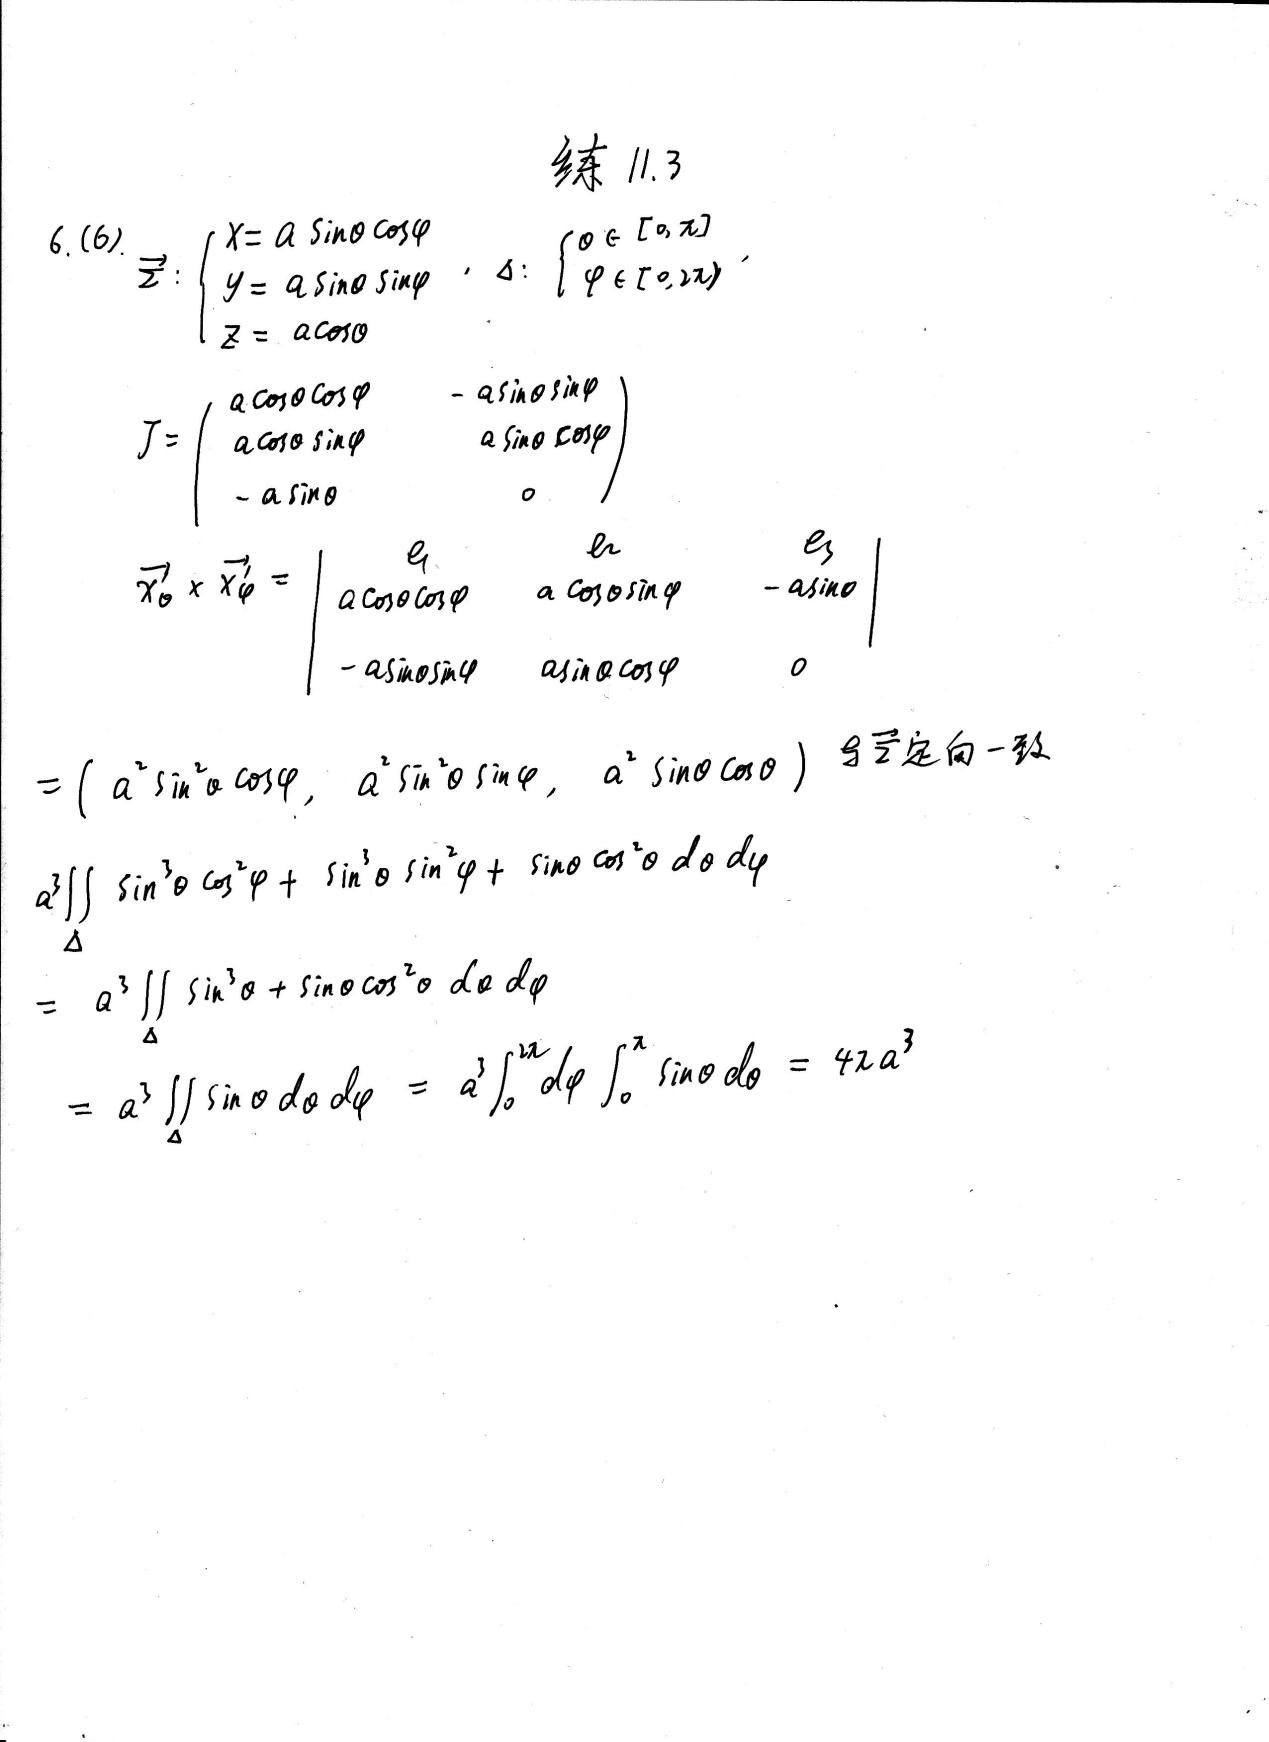 练 11.3
6.(6). Σ⃗: { x = a sinθ cosφ , Δ: { θ ∈ [0, π]
y = a sinθ sinφ φ ∈ [0, 2π) ,
z = a cosθ
J = ( a cosθ cosφ - a sinθ sinφ
a cosθ sinφ a sinθ cosφ
- a sinθ 0 )
x⃗'θ × x⃗'φ = | e₁ e₂ e₃
a cosθ cosφ a cosθ sinφ - a sinθ
- a sinθ sinφ a sinθ cosφ 0 |
= ( a² sin²θ cosφ, a² sin²θ sinφ, a² sinθ cosθ ) 与Σ⃗定向一致
a³ ∬_Δ sin³θ cos²φ + sin³θ sin²φ + sinθ cos²θ dθ dφ
= a³ ∬_Δ sin³θ + sinθ cos²θ dθ dφ
= a³ ∬_Δ sinθ dθ dφ = a³ ∫₀^{2π} dφ ∫₀^π sinθ dθ = 4πa³